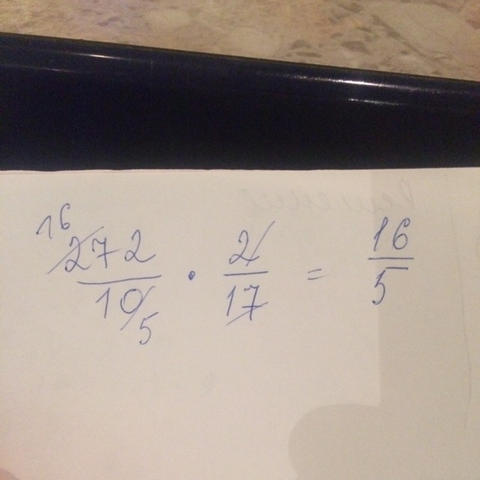 16
272/10 5 · 2/17 = 16/5